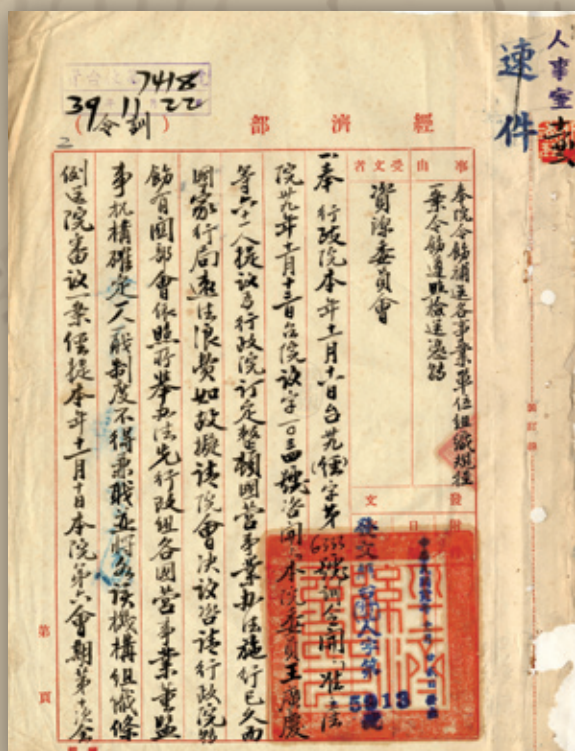 人事室
速件
7418
39 11 22
經濟部（訓令）
事由
奉院令飭補送各事業單位組織規程
一案令飭遵照檢送憑轉
受文者
資源委員會
發文
附
日
中華民國
發文
台 人字第
5913
號
一、奉 行政院本年十一月十六日台卅九(經)字第 號訓令開「准立法
院卅九年十一月十三日台院議字一〇三四號咨開『本院委員王廣慶
等六十一人提議為行政院訂定整頓國營事業辦法施行已久而
國家行局違法浪費如故擬請院會決議咨請行政院轉
飭有關部會依照所舉辦法先行改組各國營事業董監
事机構確定一人一職制度不得兼職並將各該機構組織條
例送院審议一案經提本年十一月十日本院第六會期第十次會
第 頁